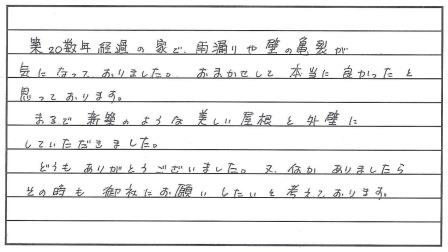 築20数年経過の家で、雨漏りや壁の亀裂が
気になっておりました。おまかせして本当に良かったと
思っております。
まるで新築のような美しい屋根と外壁に
していただきました。
どうもありがとうございました。又、何かありましたら
その時も御社にお願いしたいと考えております。